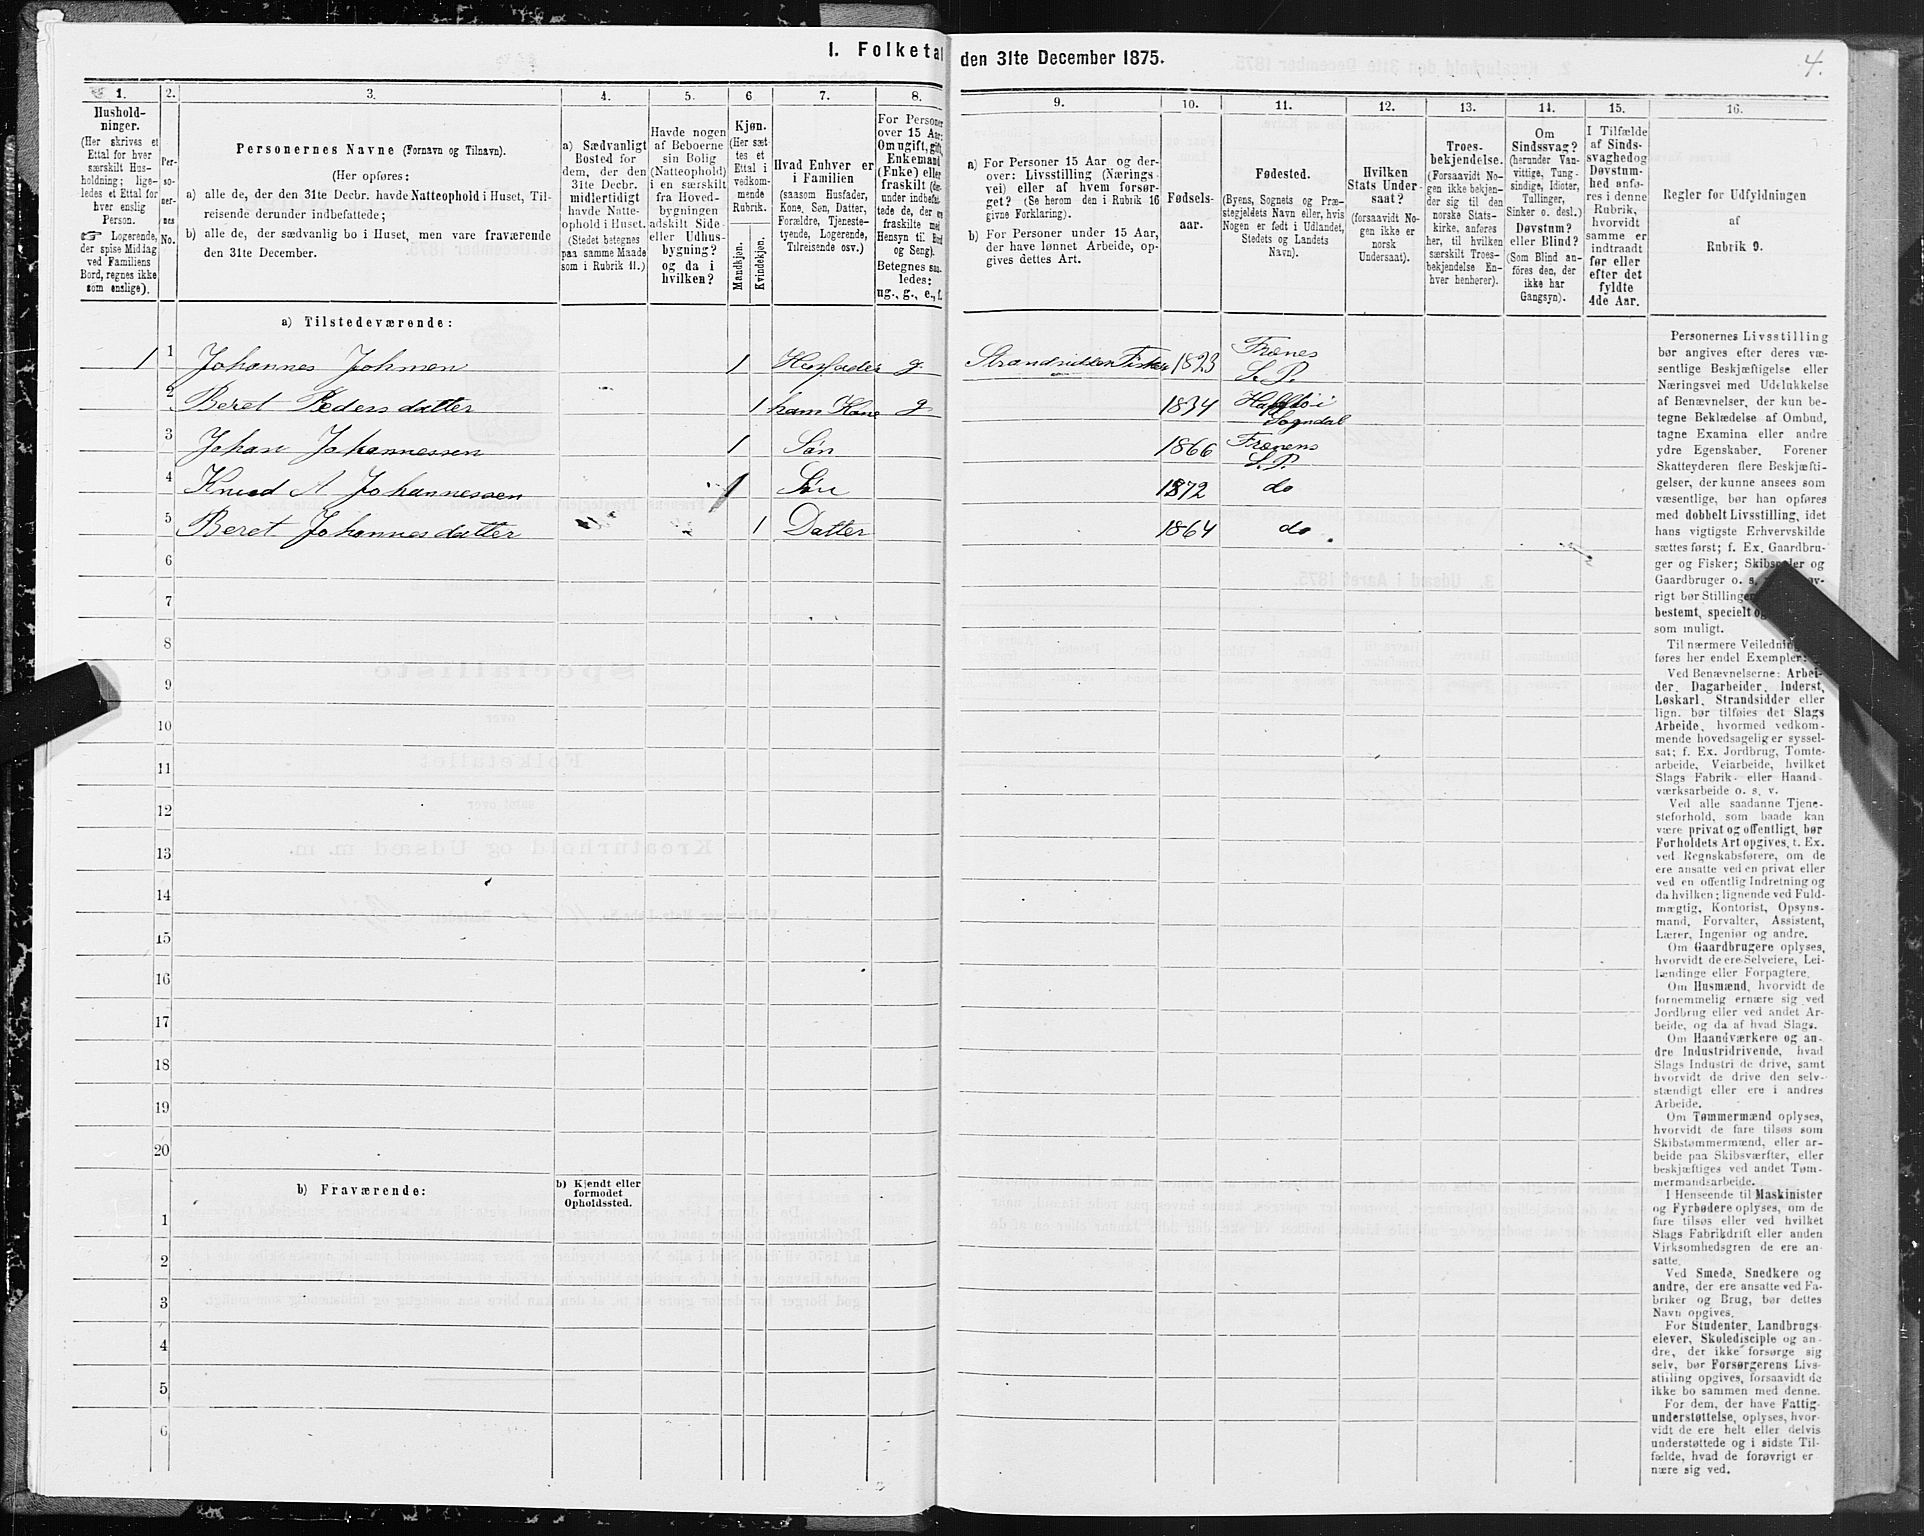 1. Folketal den 31te December 1875.
4.
1.
Hushold-
ninger.
(Her skrives et
Ettal for hver
særskilt Hus-
holdning; lige-
ledes et Ettal for
hver enslig
Person.
☞ Logerende,
der spise Middag
ved Familiens
Bord, regnes ikke
som enslige).
2.
Per-
so-
ner-
nes
No.
3.
Personernes Navne (Fornavn og Tilnavn).
(Her opføres:
a) alle de, der den 31te Decbr. havde Natteophold i Huset, Til-
reisende derunder indbefattede;
b) alle de, der sædvanlig bo i Huset, men vare fraværende
den 31te December.
4.
a) Sædvanligt
Bosted for
dem, der den
31te Decbr.
midlertidigt
havde Natte-
ophold i Huset.
(Stedet betegnes
paa samme Maade
som i Rubrik 11.)
5.
Havde nogen
af Beboerne
sin Bolig
(Natteophold)
i en særskilt
fra Hoved-
bygningen
adskilt Side-
eller Udhus-
bygning?
og da i
hvilken?
6
Kjøn.
(Her sæt
tes et
Ettal i
vedkom-
mende
Rubrik.
Mandkjøn.
Kvindekjøn.
7.
Hvad Enhver er
i Familien
(saasom Husfader,
Kone, Søn, Datter,
Forældre, Tjeneste-
tyende, Logerende,
Tilreisende osv.)
8.
For Personer
over 15 Aar:
Om ugift, gift,
Enkemand
(Enke) eller
fraskilt (de-
under indbefat-
tede de, der er
fraskilte med
Hensyn til Bord
og Seng).
Betegnes saa-
ledes:
ug., g., e., f.
9.
a) For Personer 15 Aar og der-
over: Livsstilling (Nærings-
vei) eller af hvem forsør-
get? (Se herom den i Rubrik 16
givne Forklaring).
b) For Personer under 15 Aar,
der have lønnet Arbeide, op-
gives dettes Art.
10.
Fødsels-
aar.
11.
Fødested.
(Byens, Sognets og Præ-
stegjeldets Navn eller, hvis
Nogen er født i Udlandet,
Stedets og Landets
Navn).
12.
Hvilken
Stats Under-
saat?
(forsaavidt No-
gen ikke er
norsk
Undersaat).
13.
Troes-
bekjendelse.
(Forsaavidt No-
gen ikke bekjen-
der sig til den
norske Stats-
kirke, anføres
her, til hvilken
særskilt Troes-
bekjendelse En-
hver henhører).
14.
Om
Sindssvag?
(herunder Van-
vittige, Tung-
sindige, Idioter,
Tullinger,
Sinker o. desl.)
Døvstum?
eller Blind?
(Som Blind an-
føres den, der
ikke har
Gangsyn).
15.
I Tilfælde
af Sinds-
svaghedog
Døvstum-
hed anfø-
res i denne
Rubrik,
hvorvidt
samme er
indtraadt
før eller
efter det
fyldte
4de Aar.
16.
Regler for Udfyldningen
af
Rubrik 9.
a) Tilstedeværende:
1 1 Johannes Johnsen 1 Husfader g. Strandsidder Fisker 1823 Frænes S. P.
2 Beret Pedersdatter 1 hans Kone g 1834 Sogndal
3 Johan Johannessen 1 Søn 1866 Frænens S. P.
4 Knud A Johannessen 1 Søn 1872 do
5 Beret Johannesdatter 1 Datter 1864 do
6
7
8
9
10
11
12
13
14
15
16
17
18
19
20
b) Fraværende:
b) Kjendt eller
formodet
Opholdssted.
1
2
3
4
5
6
Personernes Livsstilling
bør angives efter deres væ-
sentlige Beskjæftigelse eller
Næringsvei med Udelukkelse
af Benævnelser, der kun be-
tegne Beklædelse af Ombud,
tagne Examina eller andre
ydre Egenskaber. Forener
Skatteyderen flere Beskjæfti-
gelser, der kunne ansees som
væsentlige, bør han opføres
med dobbelt Livsstilling, idet
hans vigtigste Erhvervskilde
sættes først; f. Ex. Gaardbru-
ger og Fisker; Skibsreder og
Gaardbruger o. s.
rigt bør Stillingen
bestemt, specielt og
som muligt.
Til nærmere Veiledning
føres her endel Exempler:
Ved Benævnelserne: Arbei-
der, Dagarbeider, Inderst,
Løskarl, Strandsidder eller
lign. bør tilføies det Slags
Arbeide, hvormed vedkom-
mende hovedsagelig er syssel-
sat; f. Ex. Jordbrug, Tomte-
arbeide, Veiarbeide, hvilket
Slags Fabrik- eller Haand-
værksarbeide o. s. v.
Ved alle saadanne Tjene-
steforhold, som baade kan
være privat og offentligt, bør
Forholdets Art opgives, f. Ex.
ved Regnskabsførere, om de
ere ansatte ved en privat eller
ved en offentlig Indretning og
da hvilken; lignende ved Fuld-
mægtig, Kontorist, Opsyns-
mand, Forvalter, Assistent,
Lærer, Ingeniør og andre.
Om Gaardbrugere oplyses,
hvorvidt de ere Selveiere, Lei-
lændinge eller Forpagtere.
Om Husmænd, hvorvidt de
fornemmelig ernære sig ved
Jordbrug eller ved andet Ar-
beide, og da af hvad Slags.
Om Haandværkere og an-
dre Industridrivende, hvad
Slags Industri de drive, samt
hvorvidt de drive den selv-
stændigt eller ere i andres
Arbeide.
Om Tømmermænd oplyses,
hvorvidt de fare tilsøs som
Skibstømmermænd, eller ar-
beide paa Skibsværfter, eller
beskjæftiges ved andet Tøm-
mermandsarbeide.
I Henseende til Maskinister
og Fyrbødere oplyses, om de
fare tilsøs eller ved hvilket
Slags Fabrikdrift eller anden
Virksomhedsgren de ere an-
satte.
Ved Smede, Snedkere og
andre, der ere ansatte ved Fa-
briker og Brug, bør dettes
Navn opgives.
For Studenter, Landbrugs-
elever, Skoledisciple og an-
dre, der ikke forsørge sig
selv, bør Forsørgerens Livs-
stilling opgives, forsaavidt de
ikke bo sammen med denne.
For dem, der have Fattig-
understøttelse, oplyses, hvor-
vidt de ere helt eller delvis
understøttede og i sidste Til-
fælde, hvad de forøvrigt er-
nære sig ved.